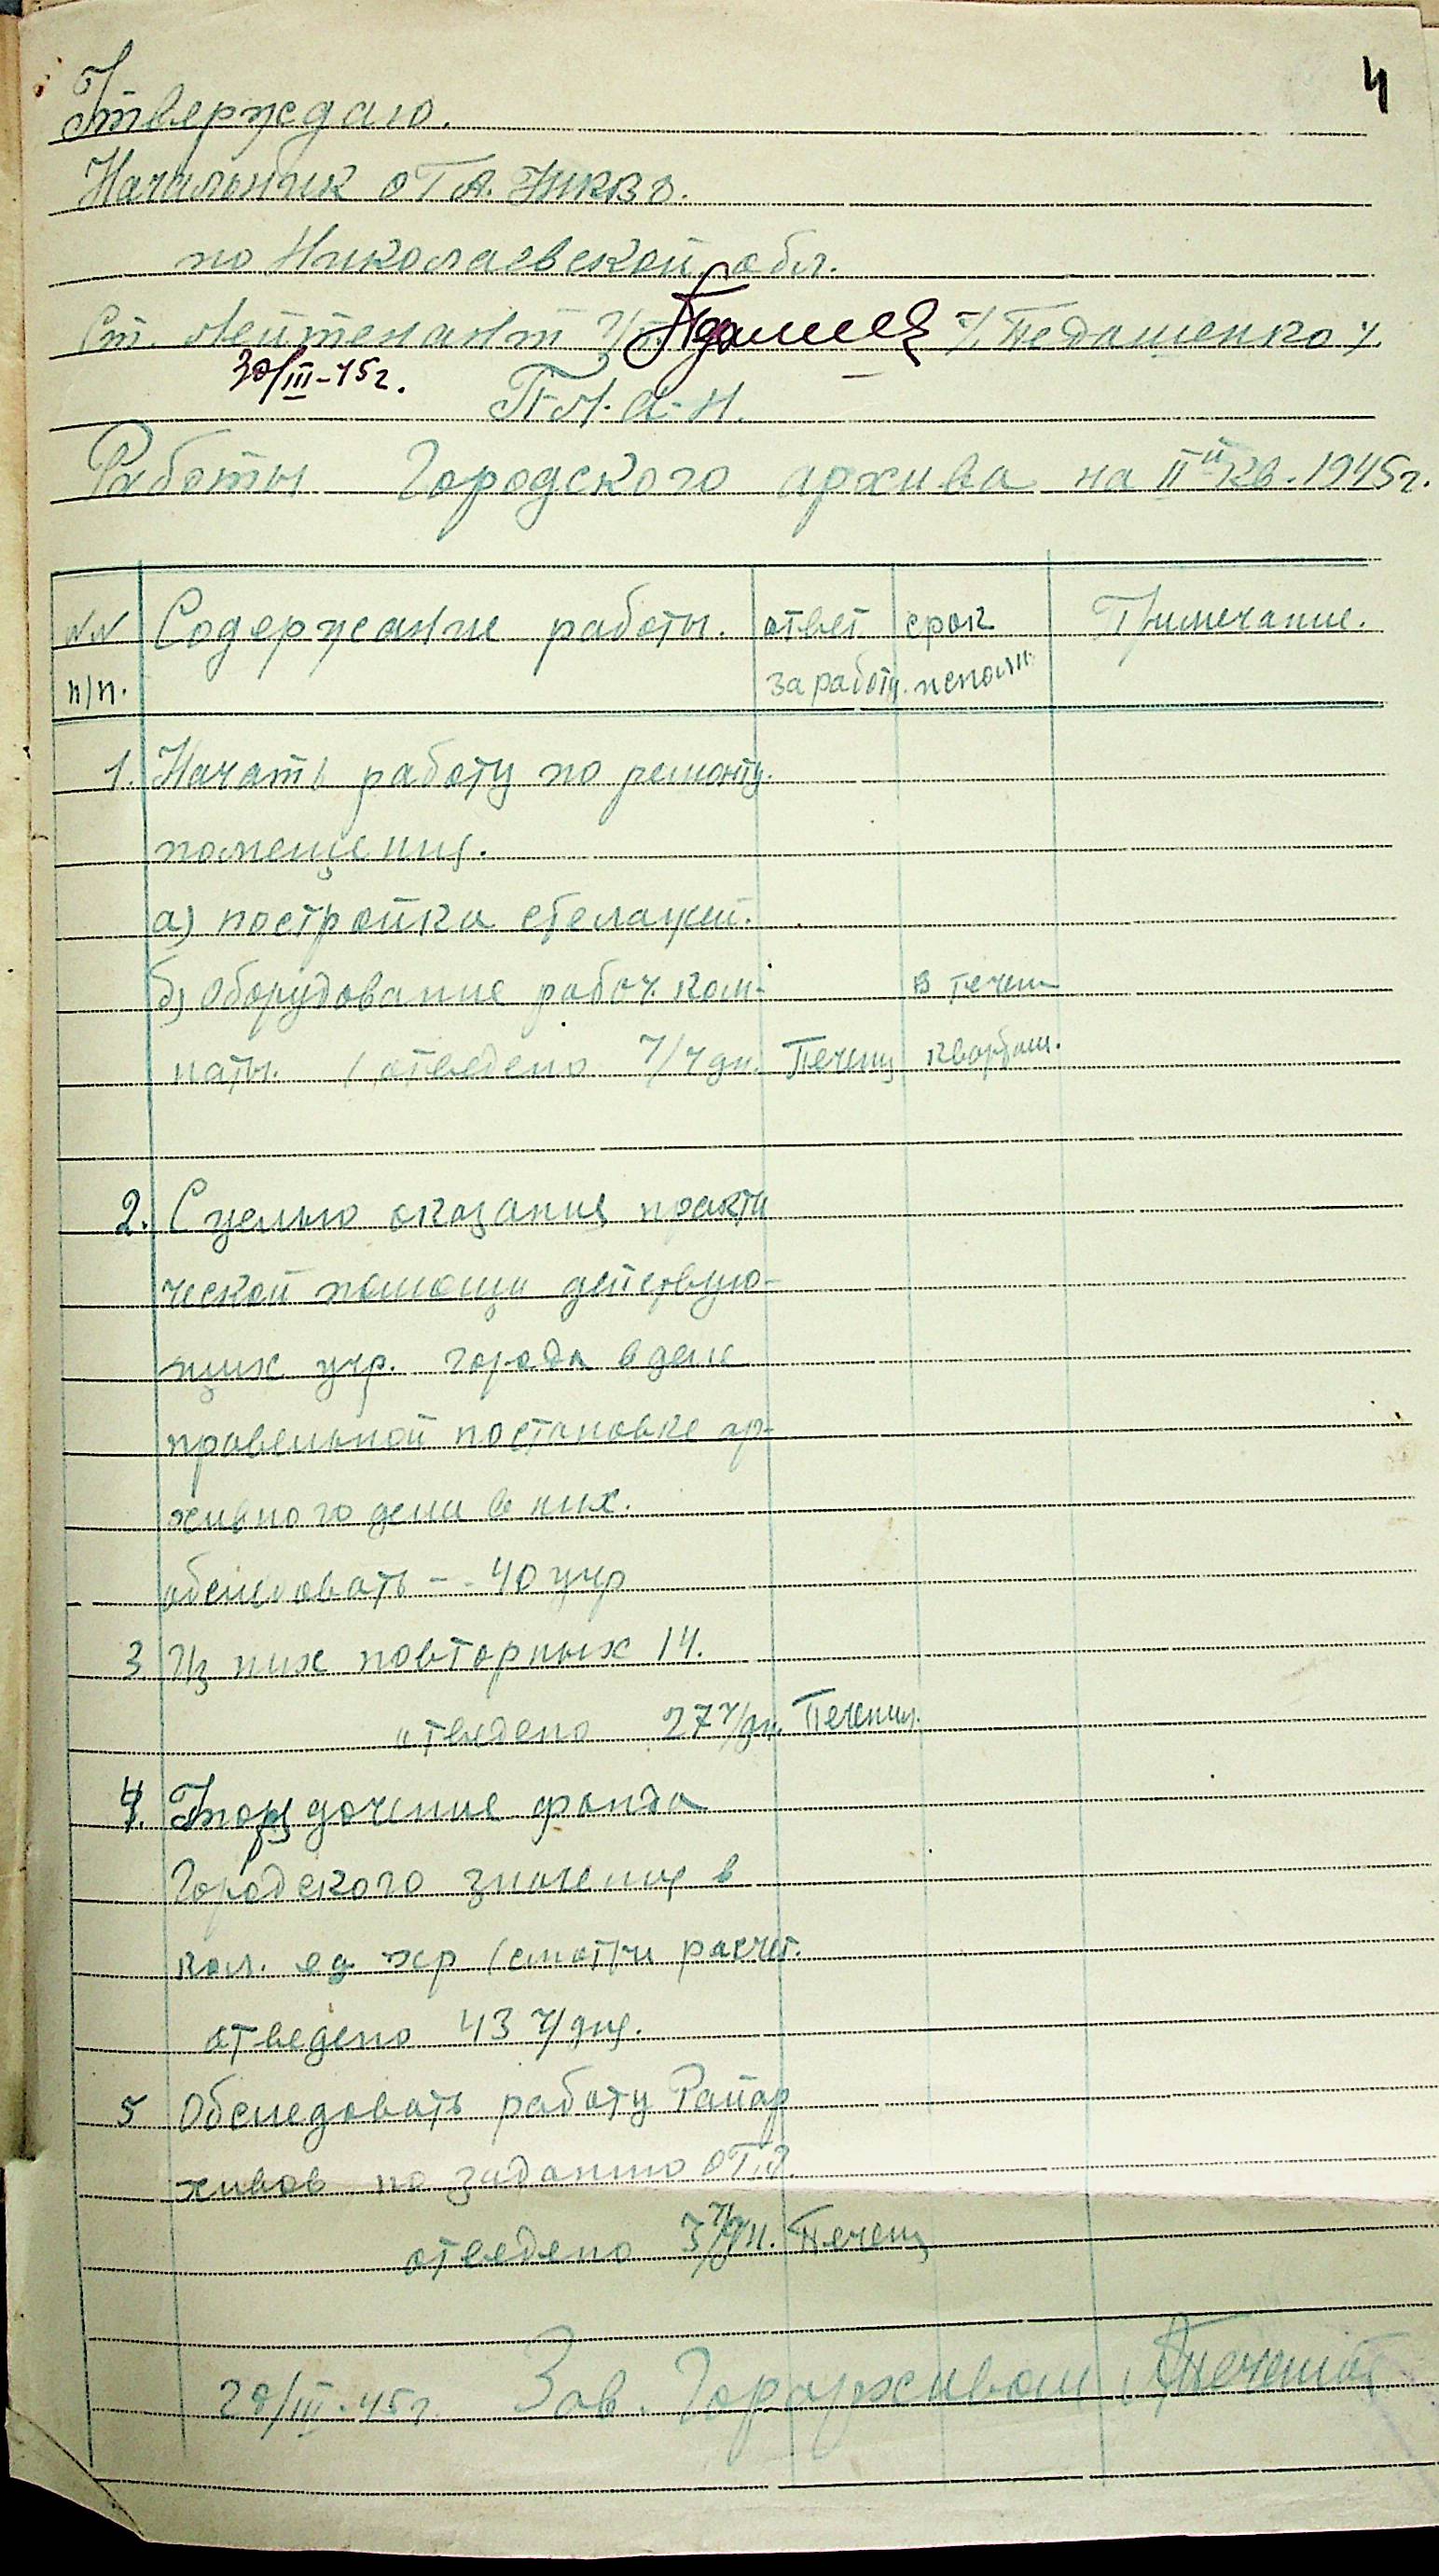 4
Утверждаю.
Начальник ОГА. НКВД.
по Николаевской обл.
Ст. лейтенант /Педашенко/.
30/III-45г.
П-Л-А-Н.
Работы Городского архива на II й кв. 1945г.
NN Содержание работы. ответ срок Примечание.
п/п. за работу. исполн.
1. Начать работу по ремонту
помещения.
а) постройка стелажей.
б) Оборудование рабоч. ком- В течен
наты. (отведено 7/ч дн. Печениц квартал.
2. С целью оказания практи
ческой помощи действую-
щих учр. города в деле
правельной постановке ар-
хивного дела в них.
обследовать -- 40 учр
3 Из них повторных 14.
отведено 27 ч/дн.
4. Упорядочение фонда
Городского значения в
кол. ед. хр (смотри расчет.
отведено 43 ч/дня.
5 Обследовать работу Райар
хивов по заданию ОГА.
отведено 3 ч/дн.
29/III-45г. Зав. Горархивом